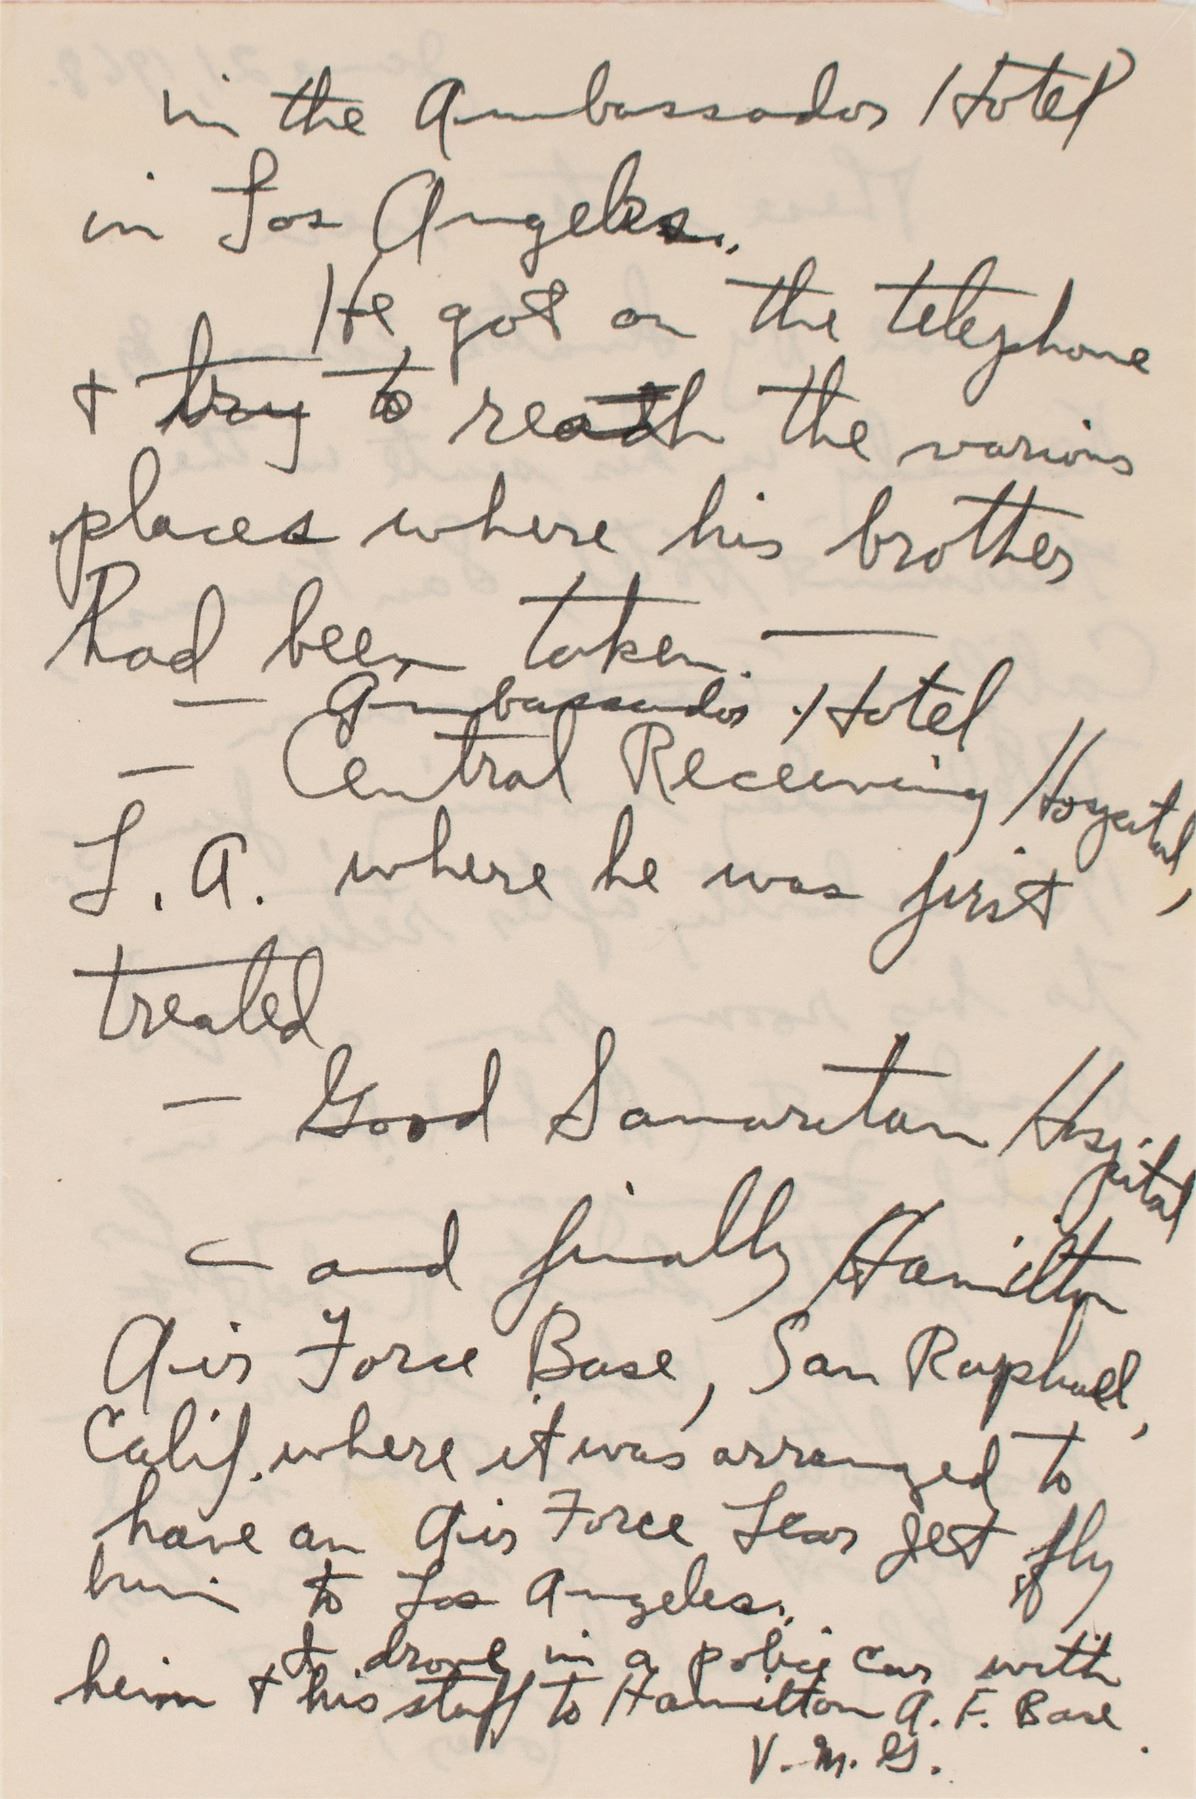 in the Ambassador Hotel
in Los Angeles.
He got on the telephone
+ try to reach the various
places where his brother
had been taken. —
— Ambassador Hotel
— Central Receiving Hospital,
L. A. where he was first
treated
— Good Samaritan Hospital
— and finally Hamilton
Air Force Base, San Raphael,
Calif. where it was arranged to
have an Air Force Lear jet fly
him to Los Angeles.
I drove in a police car with
him + his staff to Hamilton A. F. Base.
V. M. G.